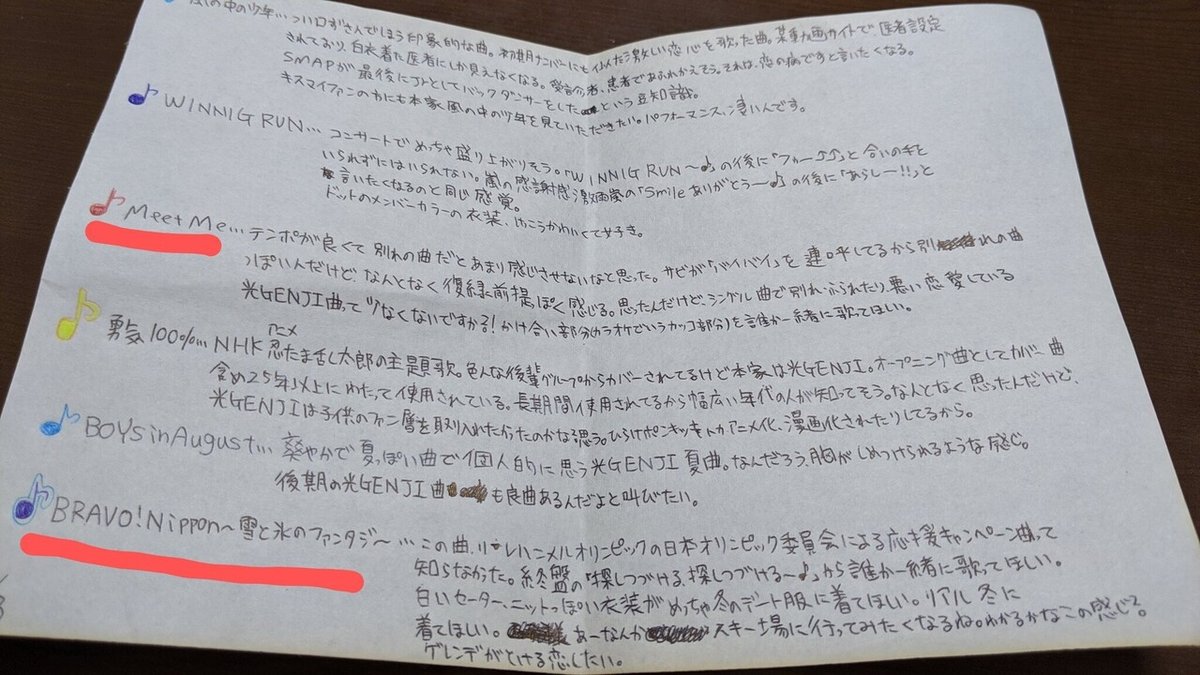 風の中の少年…つい口ずさんでしまう印象的な曲。初期ナンバーにも似た激しい恋心を歌った曲。某動画サイトで、医者設定
されており、白衣着た医者にしか見えなくなる。受診者、患者であふれかえそう。それは、恋の病ですと言いたくなる。
SMAPが最後にJrとしてバックダンサーをしたという豆知識。
キスマイファンの方にも本家風の中の少年を見ていただきたい。パフォーマンス凄いんです。
WINNIG RUN…コンサートでめっちゃ盛り上がりそう。「WINNIG RUN〜♪」の後に「フゥー⤴⤴」と合いの手を
いられずにはいられない。嵐の感謝感激雨嵐の「Smile ありがとう〜♪」の後に「あらしー!!」と
言いたくなるのと同じ感覚。
ドットのメンバーカラーの衣装、けっこうかわいくて好き。
Meet Me…テンポが良くて別れの曲だとあまり感じさせないなと思った。サビが「バイバイ」を連呼してるから別れの曲
っぽいんだけど、なんとなく復縁前提ぽく感じる。思ったんだけど、シングル曲で別れ・ふられたり、悪い恋愛している
光GENJI曲って少なくないですかる!かけ合い部分(カラオケでいうカッコ部分)を誰か一緒に歌てほしい。
勇気100%…NHKアニメ忍たま乱太郎の主題歌。色んな後輩グループからカバーされてるけど本家は光GENJI。オープニング曲としてカバー曲
含め25年以上にわたって使用されている。長期間使用されてるから幅広い年代の人が知ってそう。なんとなく思ったんだけど、
光GENJIは子供のファン層を取り入れたかったのかなる思う。ひらけポンキッキとかアニメ化、漫画化されたりしてるから。
BOYSinAugust…爽やかで夏っぽい曲で個人的に思う光GENJI夏曲。なんだろう、胸がしめつけられるような感じ。
後期の光GENJI曲も良曲あるんだよと叫びたい。
BRAVO!Nippon〜雪と氷のファンタジ〜…この曲、リレハンメルオリンピックの日本オリンピック委員会による応援キャンペーン曲って
知らなかった。終盤の「探しつづける、探しつづける〜♪」から誰か一緒に歌ってほしい。
白いセーター、ニットっぽい衣装がめっちゃ冬のデート服に着てほしい。リアル冬に
着てほしい。あーなんかスキー場に行ってみたくなるね。わかるかなこの感じる。
ゲレンデがとける恋したい。